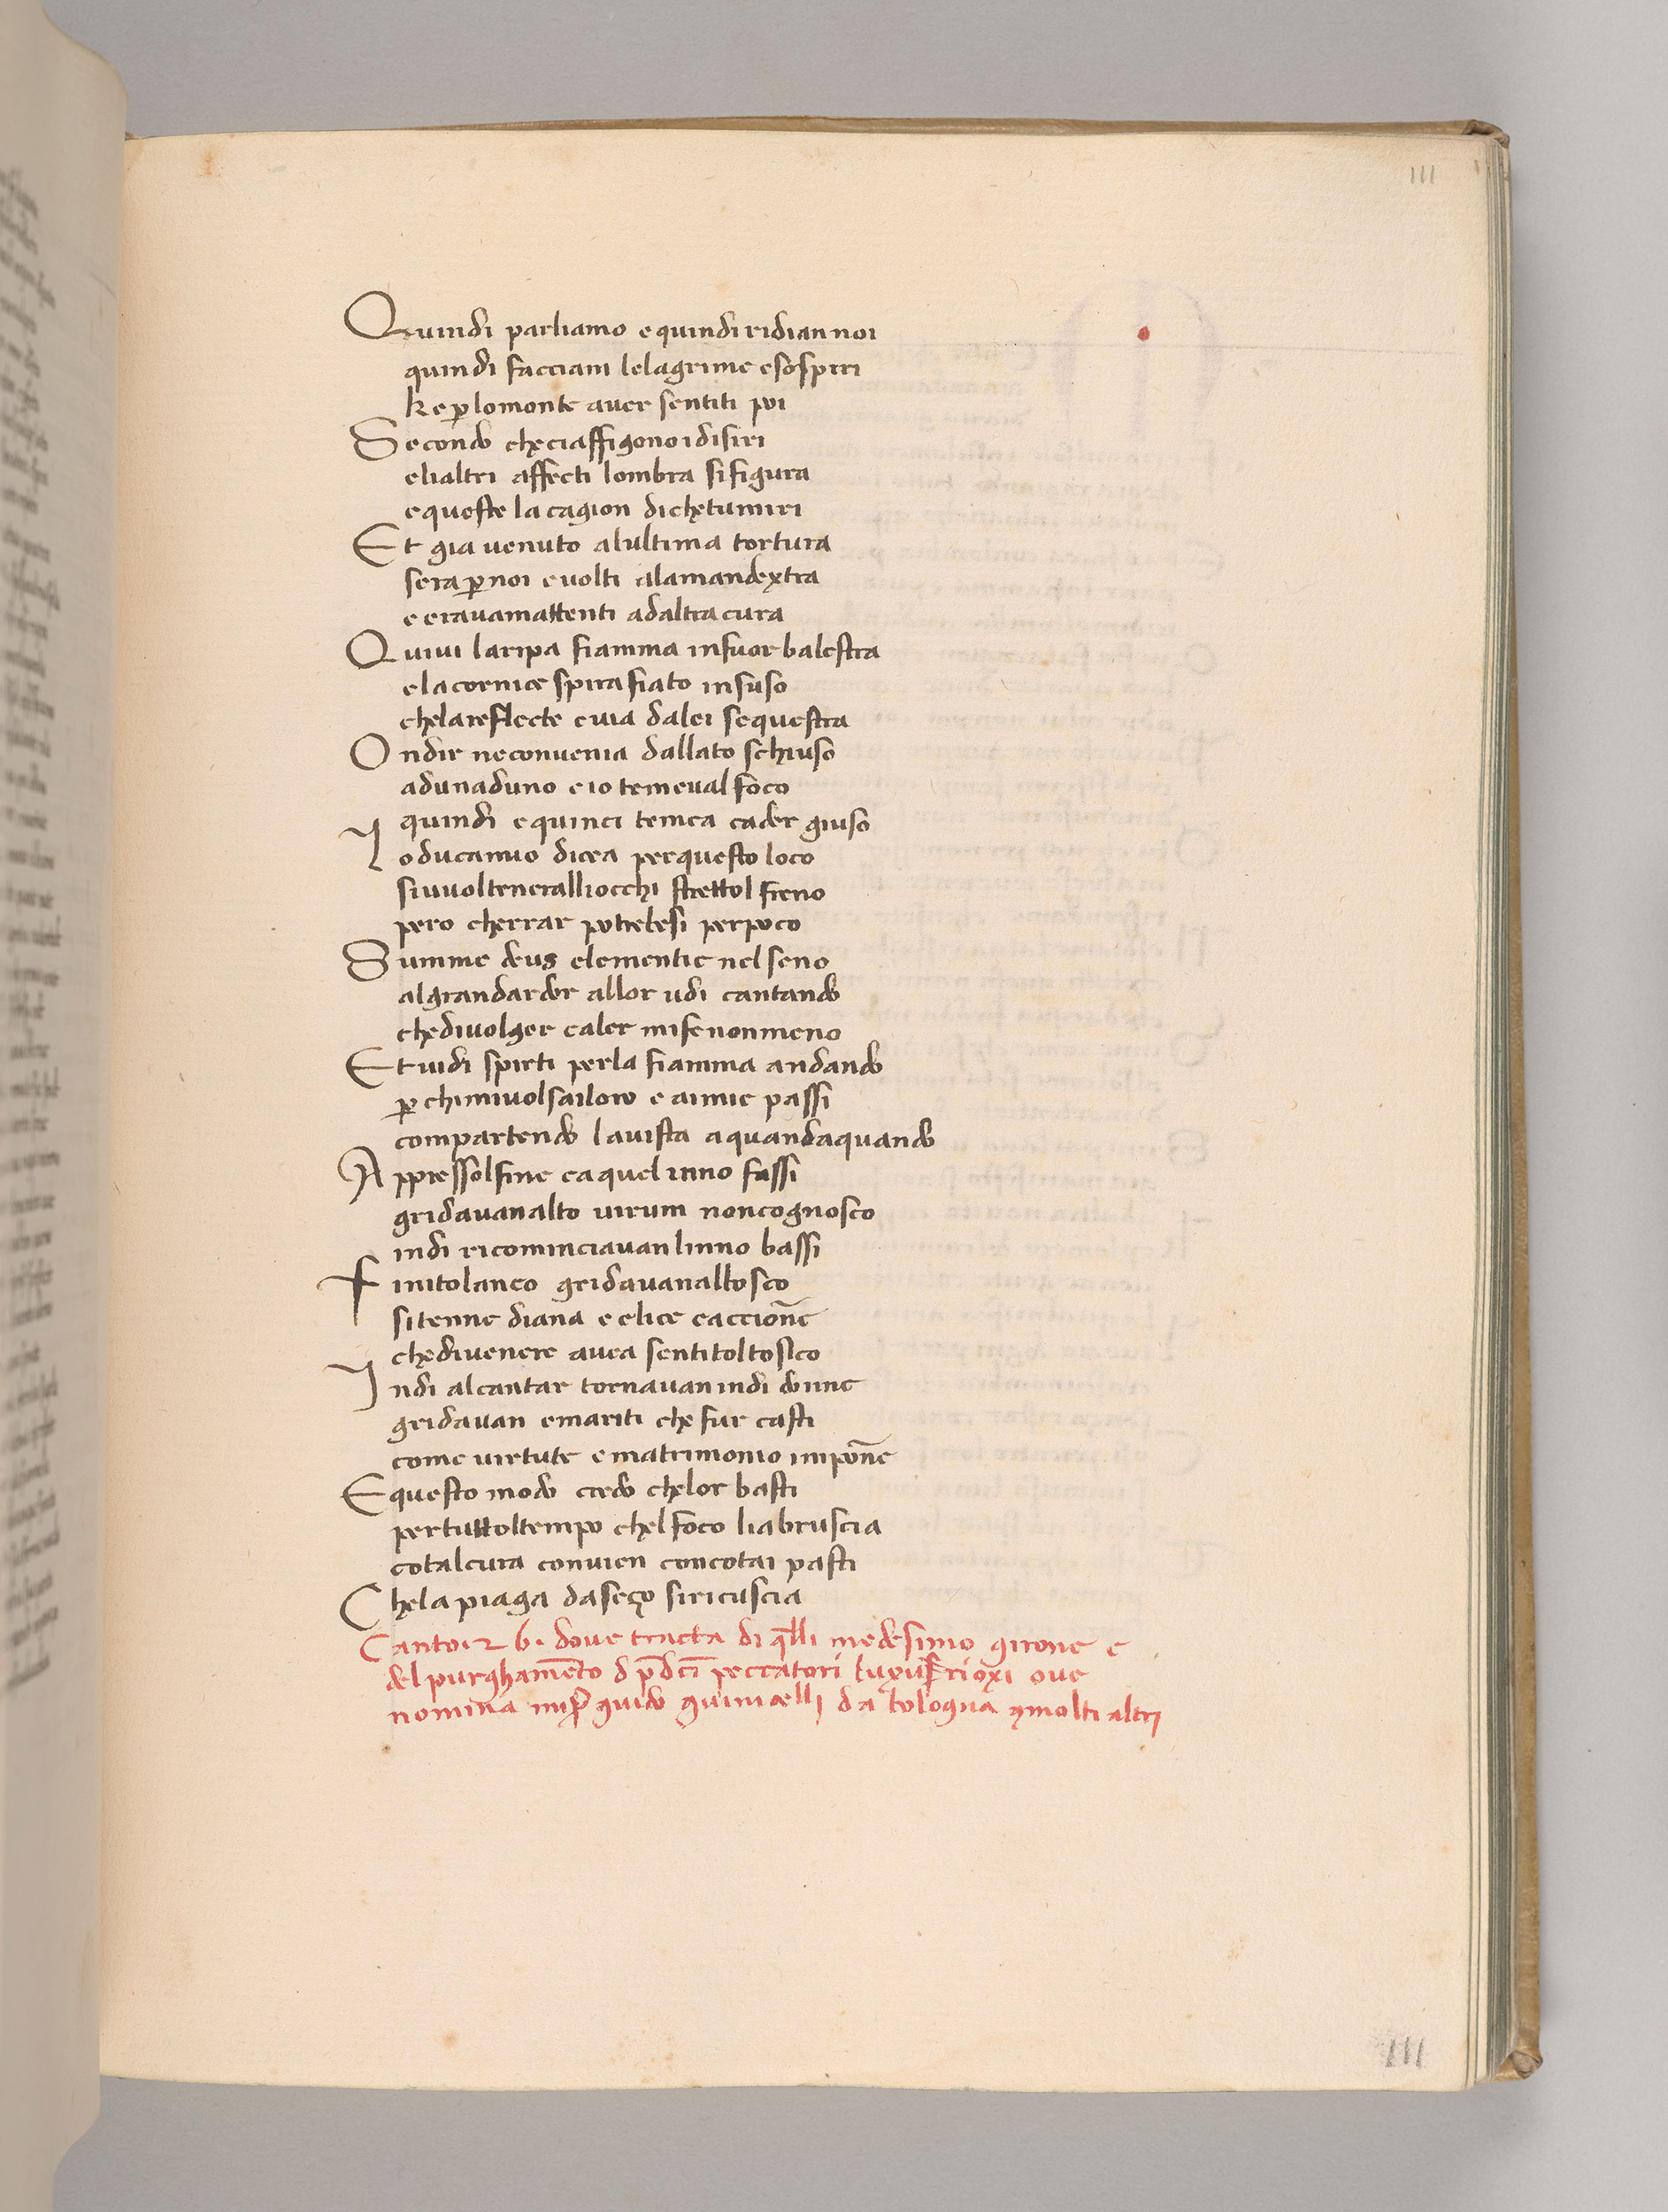 111
Quindi parliamo e quindi ridian noi
quindi facciam le lagrime e sospiri
ke p lo monte aver sentiti poi
Secondo che ci affigono i disiri
e li altri affecti lombra si figura
e queste la cagion di che tu miri
Et gia venuto a lultima tortura
sera p noi e volti a la man dextra
e eravam attenti ad altra cura
Quivi la ripa fiamma in fuor balestra
e la cornice spira fiato in suso
che la reflecte e via da lei sequestra
Ondir ne convenia dallato schiuso
ad un ad uno e io temeval foco
quindi e quinci temea cader giuso
Io duca mio dicea per questo loco
si vuol tener alli occhi strettol freno
pero cherrar potrebesi per poco
Summe deus clementie nel seno
al grandardor allor udi cantando
che di volger caler mi fe non meno
Et vidi spirti per la fiamma andando
p chi mi vol sai loro e a miei passi
compartendo la vista a quanda quando
Appressol fine ca quel inno fassi
gridavan alto virum non cognosco
indi ricominciavan linno bassi
Finitolanco gridavan al bosco
si tenne diana e elice caccione
che di venere avea sentitol tosco
Indi al cantar tornavan indi donne
gridavan e mariti che fur casti
come virtute e matrimonio impone
E questo modo credo che lor basti
per tuttol tempo chel foco li abruscia
co tal cura convien con cotai pasti
Che la piaga da seço si ricuscia
Canto 26. dove tracta di qlli medesimo girone e
del purghamento d pdcti peccatori luxurioxi ove
nomina mis guido guinicelli da bologna 9molti altri
111